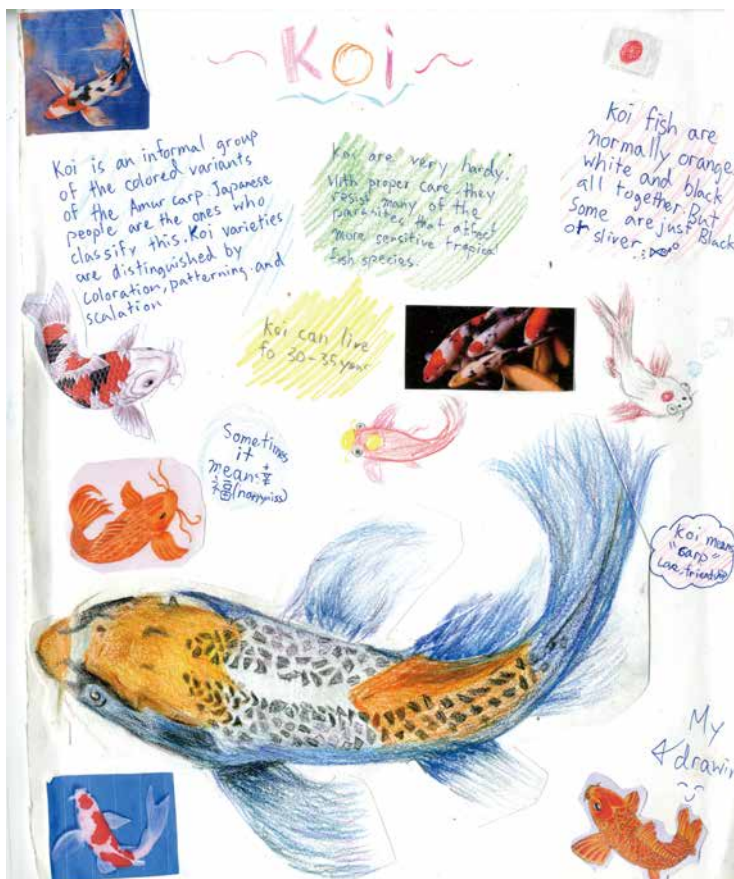 Koi
Koi is an informal group
of the colored variants
of the Amur carp. Japanese
people are the ones who
classify this. Koi varieties
are distinguished by
coloration, patterning and
scalation
Koi are very hardy.
With proper care, they
resist many of the
paramites that affect
more sensitive tropical
fish species.
Koi fish are
normally orange
white and black
all together. But
Some are just Black
or sliver
Koi can live
to 30-35 year
Sometimes
it
means 幸
福 (happyniss)
Koi means
"Carp"
Love, friendship
My
drawin